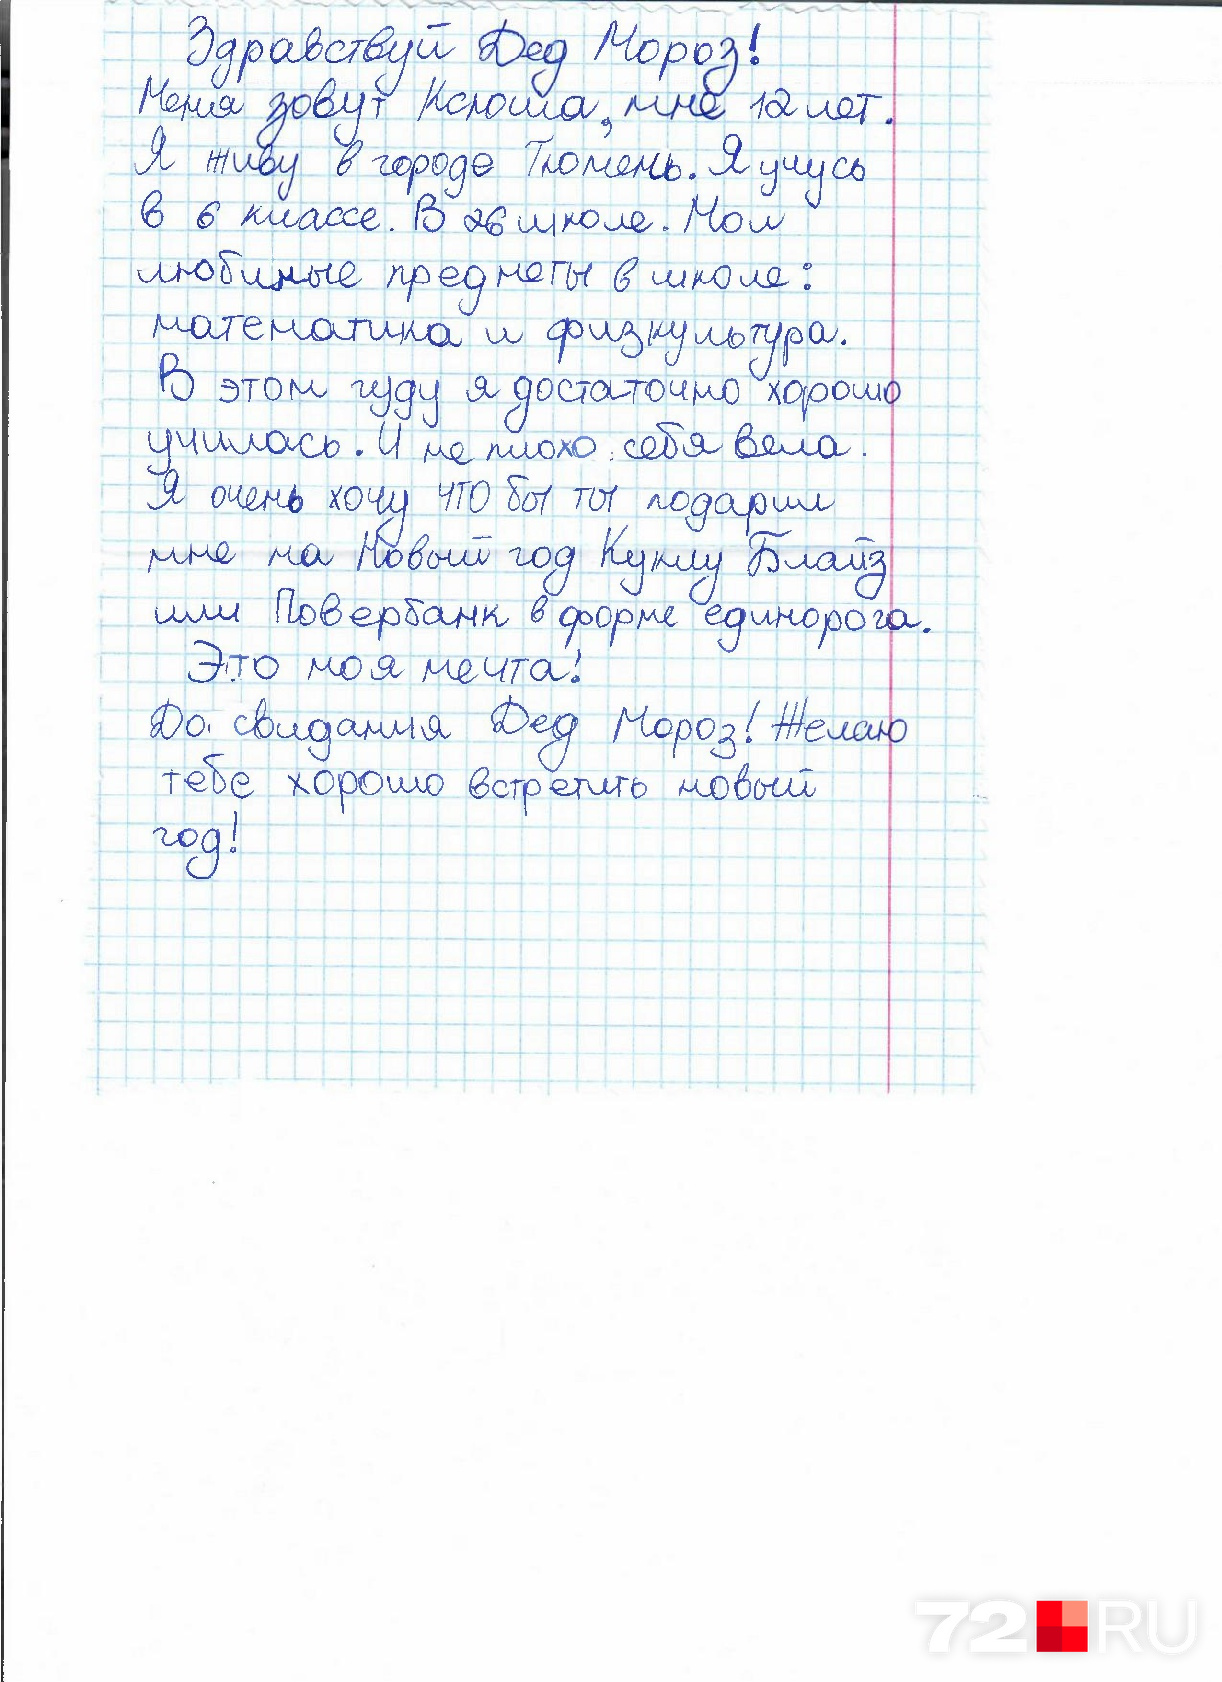 Здравствуй Дед Мороз!
Меня зовут Ксюша, мне 12 лет.
Я живу в городе Тюмень. Я учусь
в 6 классе. В 26 школе. Мои
любимые предметы в школе:
математика и физкультура.
В этом гуду я достаточно хорошо
училась. И не плохо себя вела.
Я очень хочу что бы ты подарил
мне на Новый год Куклу Блайз
или Повербанк в форме единорога.
Это моя мечта!
До свидания Дед Мороз! Желаю
тебе хорошо встретить новый
год!
72.RU